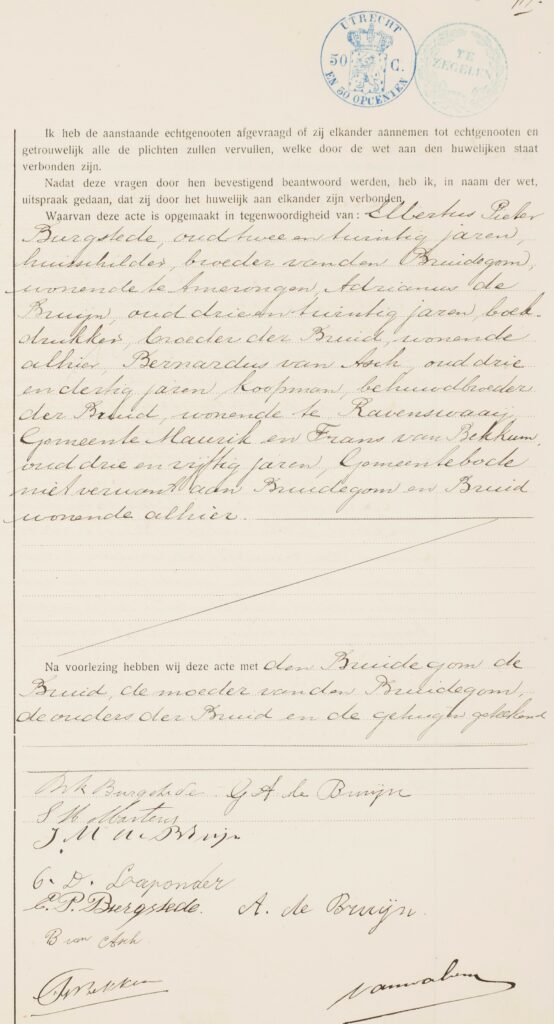 UTRECHT
50 C.
EN 50 OPCENTEN
TE
ZEGELEN
Ik heb de aanstaande echtgenooten afgevraagd of zij elkander aannemen tot echtgenooten en
getrouwelijk alle de plichten zullen vervullen, welke door de wet aan den huwelijken staat
verbonden zijn.
Nadat deze vragen door hen bevestigend beantwoord werden, heb ik, in naam der wet,
uitspraak gedaan, dat zij door het huwelijk aan elkander zijn verbonden.
Waarvan deze acte is opgemaakt in tegenwoordigheid van: Elbertus Pieter
Burgstede, oud twee en twintig jaren,
huisschilder, broeder van den Bruidegom,
wonende te Amerongen, Adrianus de
Bruijn, oud drie en twintig jaren, boek-
drukker, broeder der Bruid, wonende
alhier, Bernardus van Asch, oud drie
en dertig jaren, koopman, behuwdbroeder
der Bruid, wonende te Ravenswaaij,
Gemeente Maurik en Frans van Bekkum,
oud drie en vijftig jaren, Gemeentebode
niet verwant aan Bruidegom en Bruid
wonende alhier.
Na voorlezing hebben wij deze acte met den Bruidegom de
Bruid, de moeder van den Bruidegom,
de ouders der Bruid en de getuigen geteekend
Burgstede G A de Bruijn
S H Martens
J M de Bruijn
G. D. Laponder
E. P. Burgstede. A. de Bruijn.
B van Asch